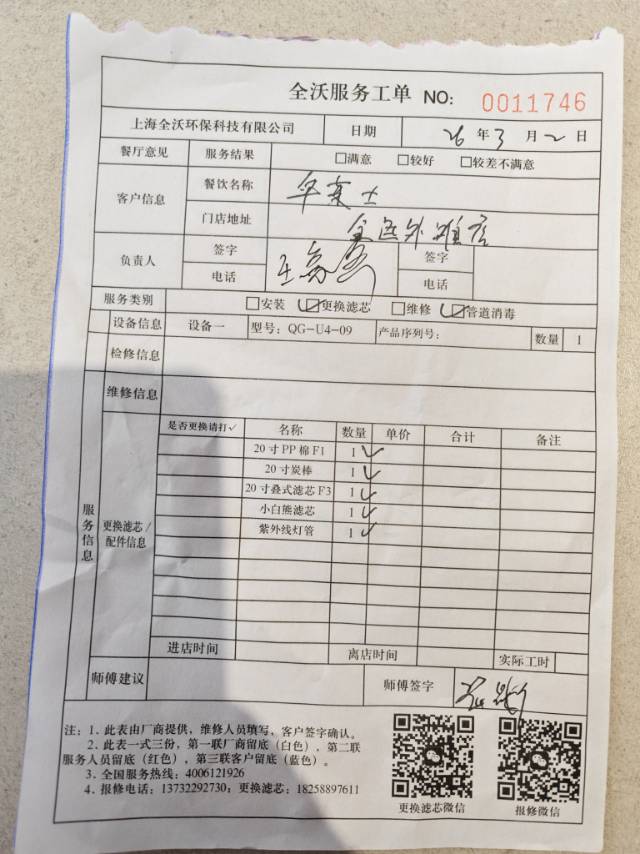 全沃服务工单 NO: 0011746
上海全沃环保科技有限公司 日期 26 年 3 月 2 日
餐厅意见 服务结果 □满意 □较好 □较差不满意
客户信息 餐饮名称
门店地址 外滩店
负责人 签字 王 签字
电话 电话
服务类别 □安装 ☑更换滤芯 □维修 ☑管道消毒
设备信息 设备一 型号: QG-U4-09 产品序列号: 数量 1
检修信息
维修信息
服务信息
更换滤芯/配件信息
是否更换请打✓ 名称 数量 单价 合计 备注
20寸PP棉F1 1 ✓
20寸炭棒 1 ✓
20寸叠式滤芯F3 1 ✓
小白熊滤芯 1 ✓
紫外线灯管 1 ✓
进店时间 离店时间 实际工时
师傅建议 师傅签字
注: 1、此表由厂商提供,维修人员填写、客户签字确认。
2、此表一式三份,第一联厂商留底(白色),第二联
服务人员留底(红色),第三联客户留底(蓝色)。
3、全国服务热线: 4006121926
4、报修电话: 13732292730; 更换滤芯: 18258897611
更换滤芯微信 报修微信